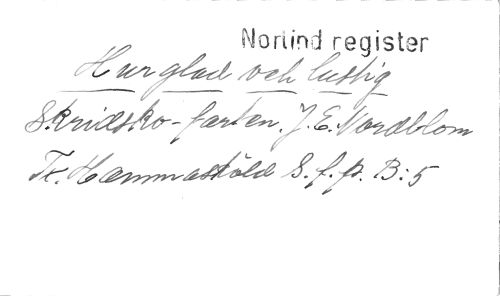 Norlind register
Hur glad och lustig
Skridsko-farten. J. E. Nordblom
Tr. Hammarsköld S. f. p. B: 5